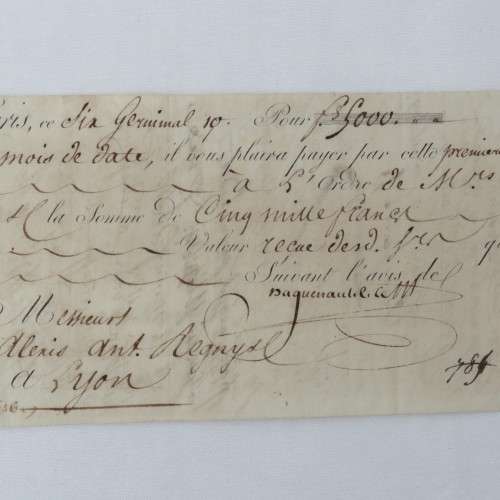 ris, ce Six Germinal 10. Pour f. 5000.
mois de date, il vous plaira payer par cette premiere
à L'Ordre de Mrs
la Somme de Cinq mille francs
Valeur recue desd. Srs
Suivant l'avis de
Daguenault & C
Messieurs
Alexis ant. Regny
a Lyon
785